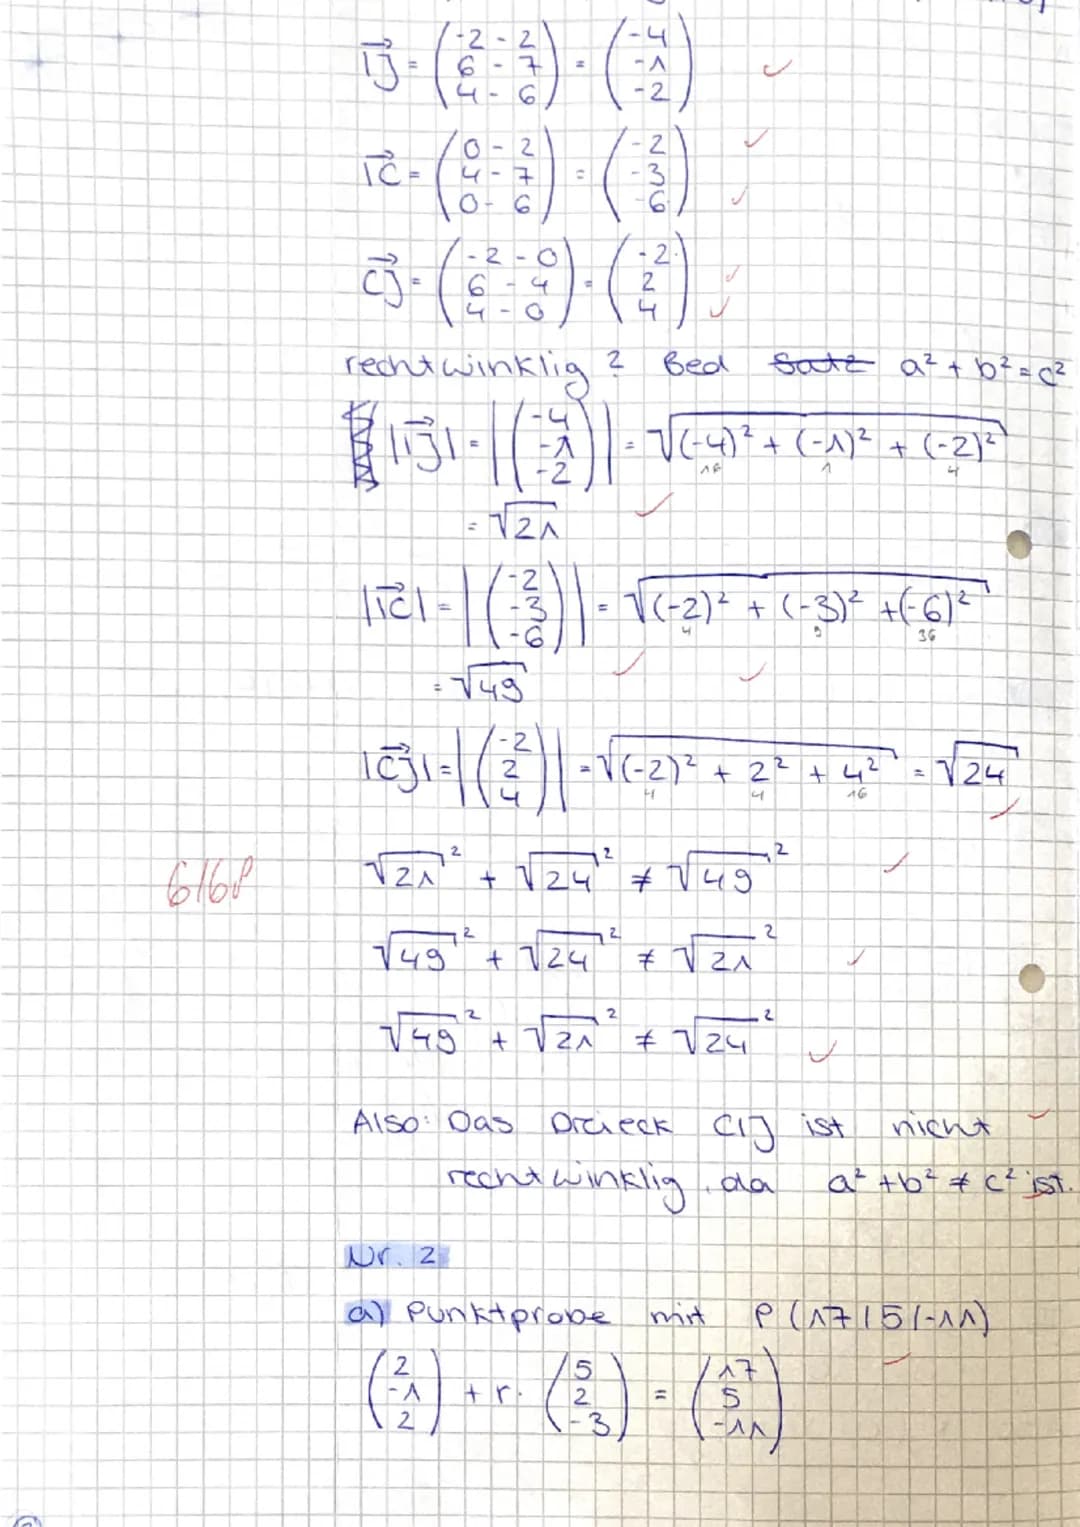 →IJ = (-2 - 2 / 6 - 7 / 4 - 6) = (-4 / -1 / -2) ✓
→IC = (0 - 2 / 4 - 7 / 0 - 6) = (-2 / -3 / -6) ✓ ✓
→CJ = (-2 - 0 / 6 - 4 / 4 - 0) = (-2 / 2 / 4) ✓ ✓
rechtwinklig? Bed Satz a² + b² = c²
|→IJ| = |(-4 / -1 / -2)| = √((-4)² + (-1)² + (-2)²)
16 1 4
= √21 ✓
|→IC| = |(-2 / -3 / -6)| = √((-2)² + (-3)² + (-6)²)
4 9 36
= √49 ✓ ✓
|→CJ| = |(-2 / 2 / 4)| = √((-2)² + 2² + 4²) = √24 ✓
4 4 16
√21² + √24² ≠ √49² ✓
6/6P
√49² + √24² ≠ √21² ✓
√49² + √21² ≠ √24² ✓
Also: Das Dreieck CIJ ist nicht ✓
rechtwinklig, da a² + b² ≠ c² ist.
Nr. 2
a) Punktprobe mit P (17|5|-11)
(2 / -1 / 2) + r · (5 / 2 / -3) = (17 / 5 / -11)